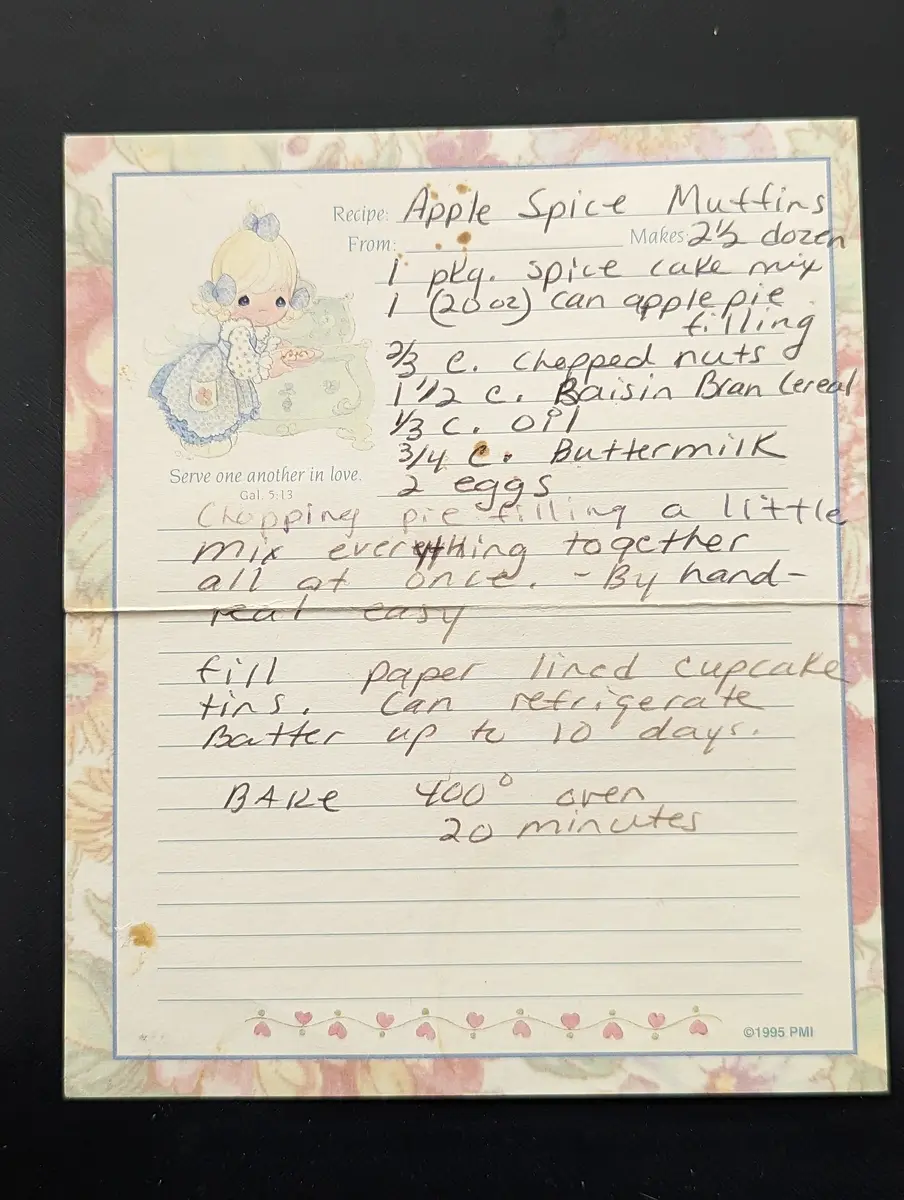 Recipe: Apple Spice Muffins
From: Makes: 2½ dozen
1 pkg. spice cake mix
1 (20 oz) can apple pie
filling
2/3 c. chopped nuts
1 1/2 c. Raisin Bran Cereal
1/3 c. oil
3/4 c. Buttermilk
2 eggs
Serve one another in love.
Gal. 5:13
Chopping pie filling a little
mix everything together
all at once. - By hand-
real easy
fill paper lined cupcake
tins. Can refrigerate
Batter up to 10 days.
BAKe 400° oven
20 minutes
©1995 PMI